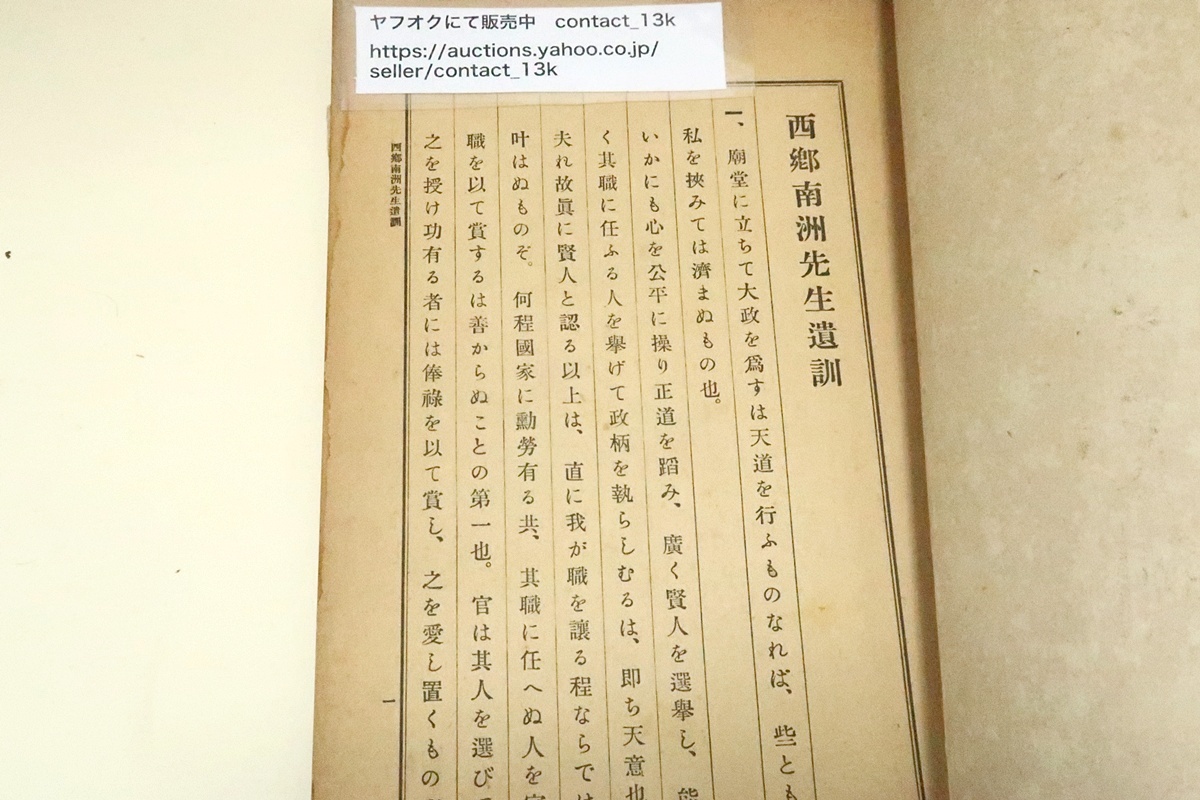 ヤフオクにて販売中 contact_13k
https://auctions.yahoo.co.jp/
seller/contact_13k
西鄕南洲先生遺訓
一、廟堂に立ちて大政を爲すは天道を行ふものなれば、些とも
私を挾みては濟まぬもの也。
いかにも心を公平に操り正道を蹈み、廣く賢人を選擧し、能
く其職に任ふる人を擧げて政柄を執らしむるは、卽ち天意也
夫れ故眞に賢人と認る以上は、直に我が職を讓る程ならでは
叶はぬものぞ。何程國家に勳勞有る共、其職に任へぬ人を官
職を以て賞するは善からぬことの第一也。官は其人を選びて
之を授け功有る者には俸祿を以て賞し、之を愛し置くもの
西鄕南洲先生遺訓
一